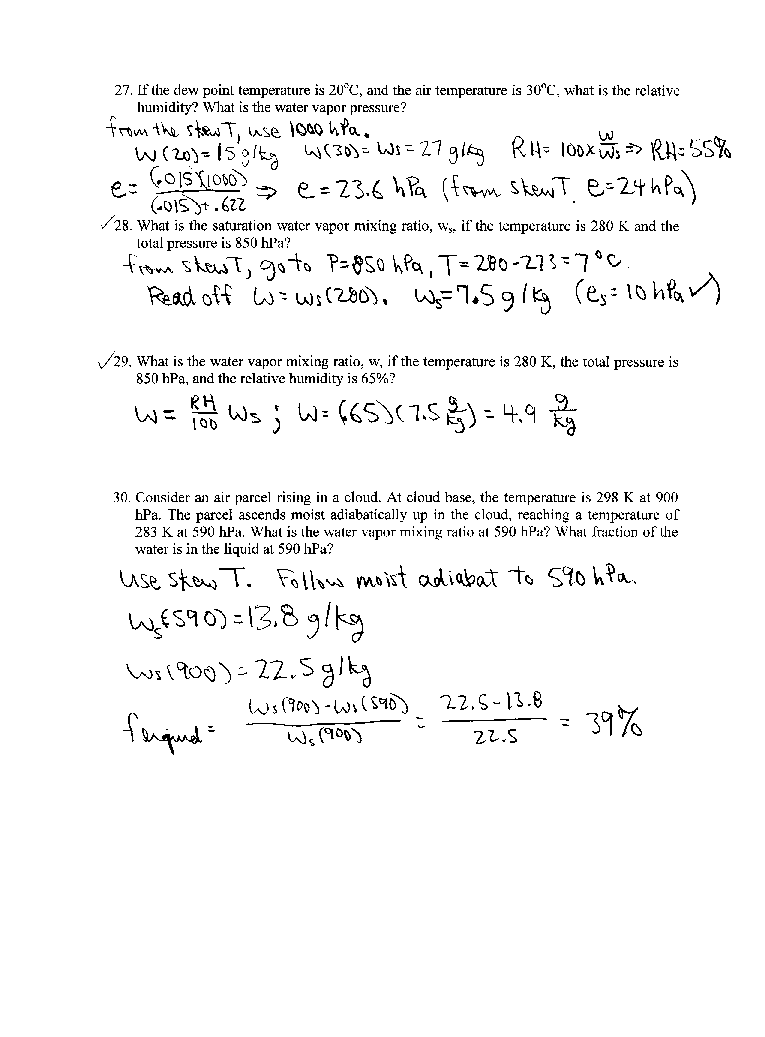 27. If the dew point temperature is 20°C, and the air temperature is 30°C, what is the relative
humidity? What is the water vapor pressure?
from the skew T, use 1000 hPa.
w(20) = 15 g/kg w(30) = ws = 27 g/kg RH = 100 x w/ws => RH = 55%
e = (.015)(1000)/(.015)+.622 => e = 23.6 hPa (from skew T e=24 hPa)
✓28. What is the saturation water vapor mixing ratio, ws, if the temperature is 280 K and the
total pressure is 850 hPa?
from skew T, go to P=850 hPa, T=280-273=7°C.
Read off w = ws(280). ws=7.5 g/kg (es=10 hPa ✓)
✓29. What is the water vapor mixing ratio, w, if the temperature is 280 K, the total pressure is
850 hPa, and the relative humidity is 65%?
w = RH/100 ws ; w = (.65)(7.5 g/kg) = 4.9 g/kg
30. Consider an air parcel rising in a cloud. At cloud base, the temperature is 298 K at 900
hPa. The parcel ascends moist adiabatically up in the cloud, reaching a temperature of
283 K at 590 hPa. What is the water vapor mixing ratio at 590 hPa? What fraction of the
water is in the liquid at 590 hPa?
Use skew T. Follow moist adiabat to 590 hPa.
ws(590) = 13.8 g/kg
ws(900) = 22.5 g/kg
f liquid = ws(900)-ws(590)/ws(900) = 22.5-13.8/22.5 = 39%